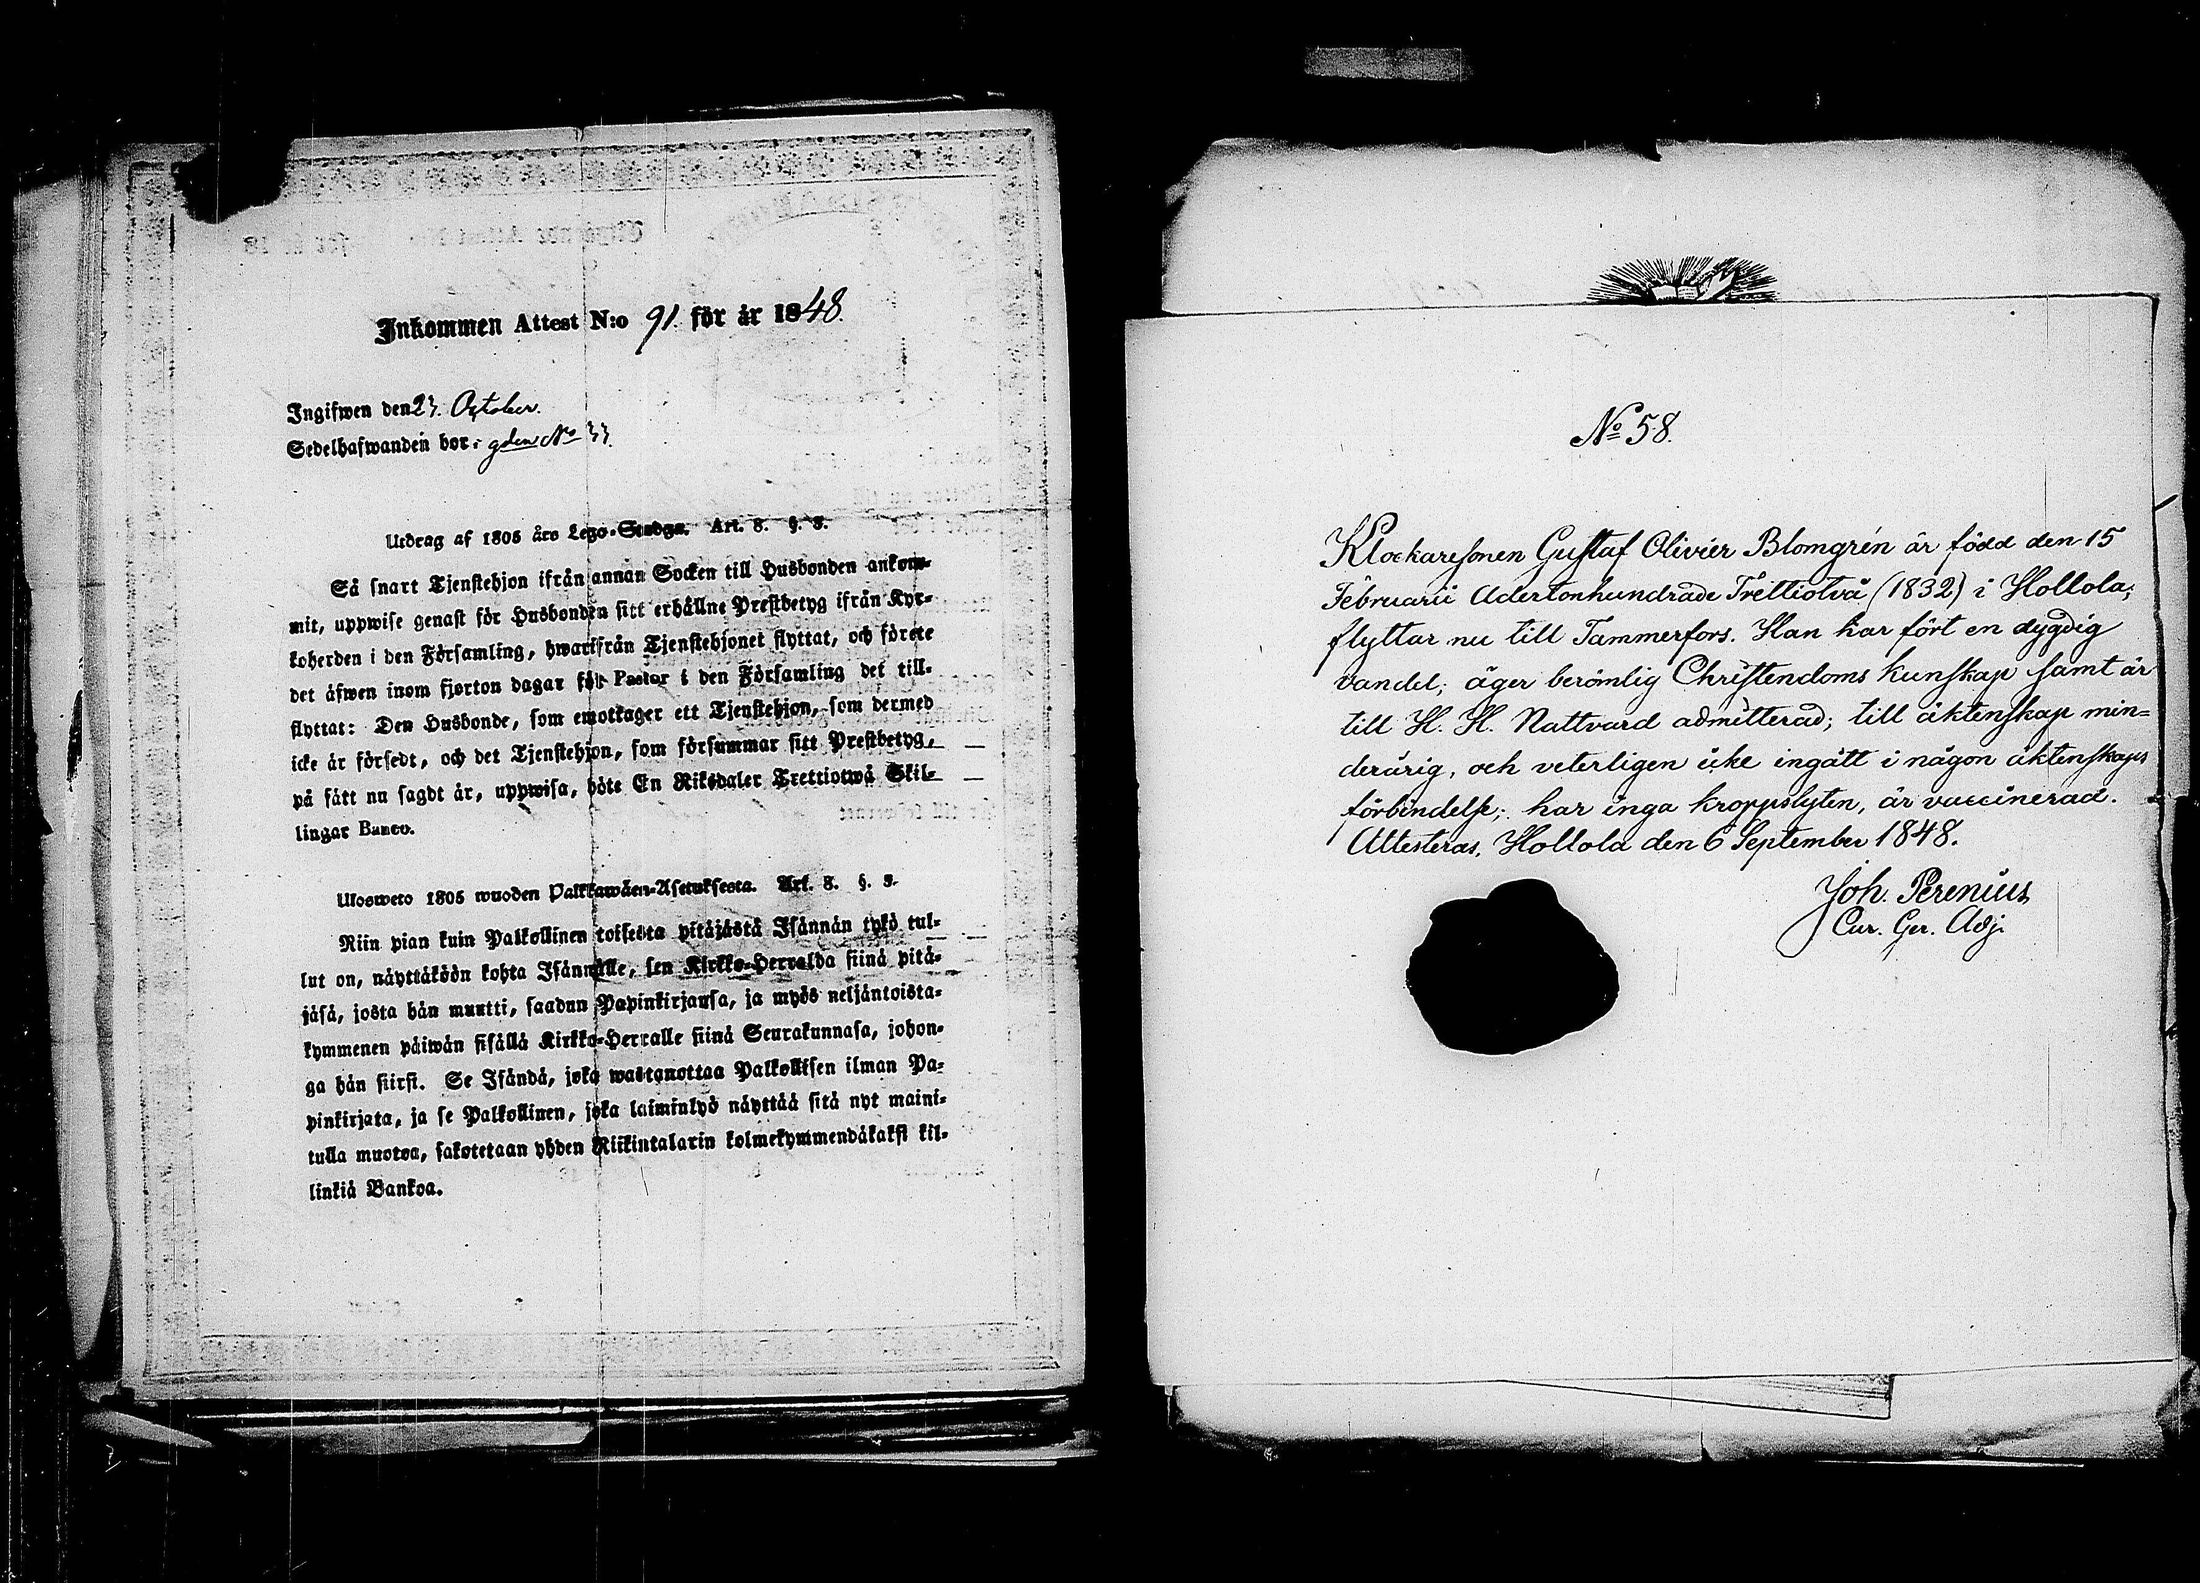 Inkommen Attest N:o 91. för år 1848.
Ingifwen den 23. October.
Sedelhafwanden bor i gden No 33.
Utdrag af 1805 års Lego-Stadga. Art. 8. §. 3.
Så snart Tjenstehjon ifrån annan Socken till Husbonden ankom-
mit, uppwise genast för Husbonden sitt erhållne Prestbetyg ifrån Kyr-
koherden i den Församling, hwarifrån Tjenstehjonet flyttat, och förete
det äfwen inom fjorton dagar för Pastor i den Församling det till-
flyttat: Den Husbonde, som emottager ett Tjenstehjon, som dermed
icke är försedt, och det Tjenstehjon, som försummar sitt Prestbetyg,
på sätt nu sagdt är, uppwisa, böte En Riksdaler Trettiotwå Skil-
lingar Banco.
Ulosweto 1805 wuoden Palkkawäen-Asetuksesta. Art. 8. §. 3.
Niin pian kuin Palkollinen toisesta pitäjästä Isännän tykö tul-
lut on, näyttäköön kohta Isännälle, sen Kirkko-Herralda siinä pitä-
jäsä, josta hän muutti, saadun Papinkirjansa, ja myös neljäntoista-
kymmenen päiwän sisällä Kirkko-Herralle siinä Seurakunnasa, johon-
ga hän siirsi. Se Isändä, joka wastanottaa Palkollisen ilman Pa-
pinkirjata, ja se Palkollinen, joka laiminlyö näyttää sitä nyt maini-
tulla muotoa, sakotetaan yhden Riikintalarin kolmekymmendäkaksi kil-
linkiä Bankoa.
No 58.
Klockaresonen Gustaf Olivier Blomgrén är född den 15
Februarii Adertonhundrade Trettiotvå (1832) i Hollola;
flyttar nu till Tammerfors. Han har fört en dygdig
vandel; äger berömlig Christendoms kunskap samt är
till H. H. Nattvard admitterad; till äktenskap min=
derårig, och veterligen icke ingått i någon äktenskaps
förbindelse; har inga kroppslyten, är vaccinerad.
Attesteras, Hollola den 6 September 1848.
Joh. Perenius
Cur. Ger. Adj.